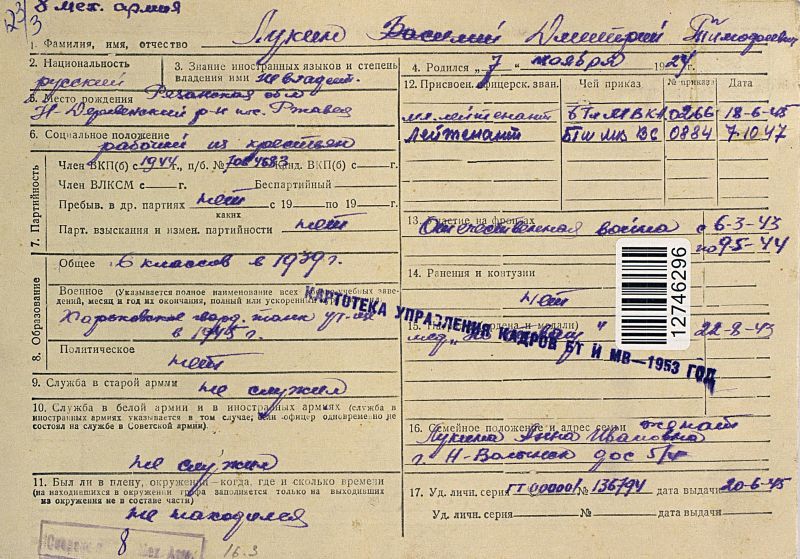 23/3
8 мех. армия
1. Фамилия, имя, отчество Лукин Василий Дмитрий Тимофеевич
2. Национальность русский
3. Знание иностранных языков и степень владения ими не владеет.
4. Родился „7" ноября 1924 г.
5. Место рождения Рязанская обл
Н. Деревенский р-н пос. Ржавец
6. Социальное положение
рабочий из крестьян
7. Партийность
Член ВКП(б) с 1944 г., п/б. № 7084683 Канд. ВКП(б) с — г.
Член ВЛКСМ с — г. Беспартийный
Пребыв. в др. партиях нет с 19 — по 19 — г.
каких
Парт. взыскания и измен. партийности нет
8. Образование
Общее 6 классов в 1939 г.
Военное (Указывается полное наименование всех военно-учебных заведений, месяц и год их окончания, полный или ускоренный
Харьковское гвард. танк уч-ще
в 1945 г.
Политическое
нет
9. Служба в старой армии не служил
10. Служба в белой армии и в иностранных армиях (служба в
иностранных армиях указывается в том случае, если офицер одновременно не
состоял на службе в Советской армии).
не служил
11. Был ли в плену, окружении—когда, где и сколько времени
(на находившихся в окружении графа заполняется только на выходивших
из окружения не в составе части)
не находился
12. Присвоен. офицерск. зван. Чей приказ № приказа Дата
мл. лейтенант БТиМВ КА 0266 18-6-45
лейтенант БТиМВ ВС 0884 7-10-47
13. Участие на фронтах
Отечественная война с 6-3-43
по 9-5-44
14. Ранения и контузии
нет
15. ордена и медали)
мед „За 22-8-43
КАРТОТЕКА УПРАВЛЕНИЯ КАДРОВ БТ И МВ—1953 ГОД
12746296
16. Семейное положение и адрес семьи женат
Лукина Анна Ивановна
г. Н-Волынск дос 5/4
17. Уд. личн. серия ГТ 00001 № 136794 дата выдачи 20-6-45
Уд. личн. серия — № — дата выдачи
8
16.3